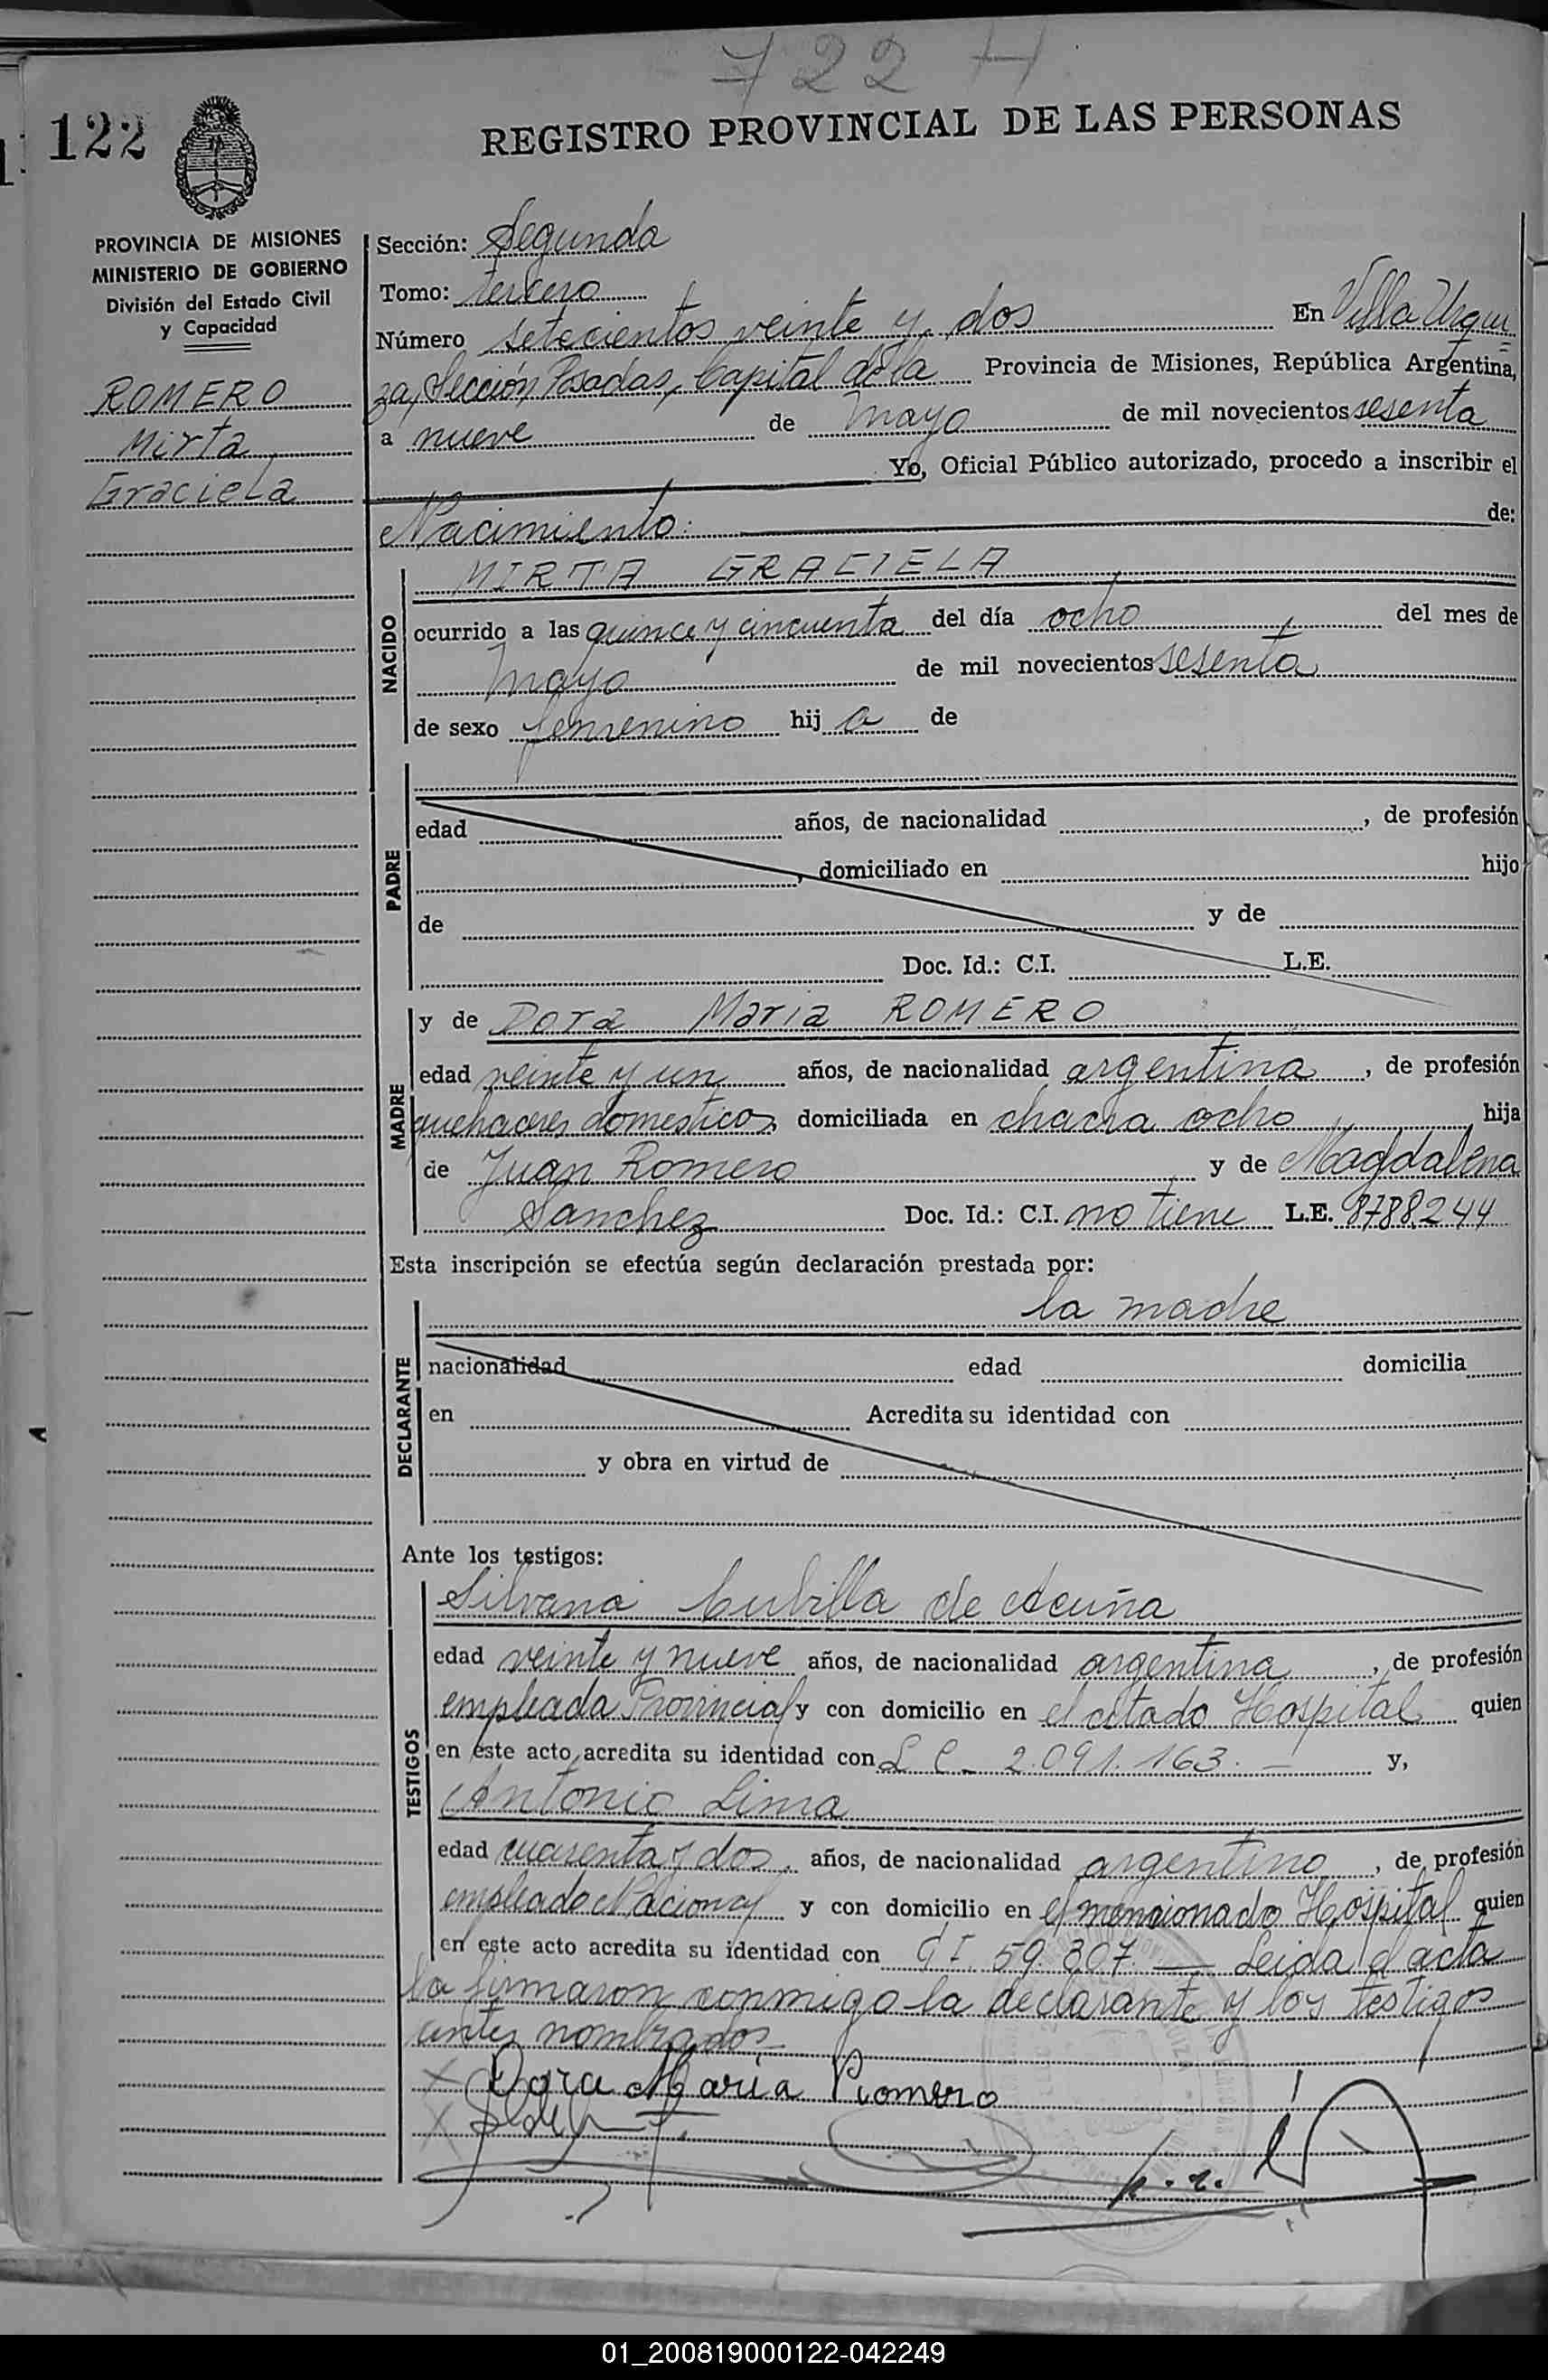 722 H
122
REGISTRO PROVINCIAL DE LAS PERSONAS
PROVINCIA DE MISIONES
MINISTERIO DE GOBIERNO
División del Estado Civil
y Capacidad
ROMERO
Mirta
Graciela
Sección: Segunda
Tomo: tercero
Número setecientos veinte y dos En Villa Urqui=
za, Sección Posadas, Capital de la Provincia de Misiones, República Argentina,
a nueve de mayo de mil novecientos sesenta
Yo, Oficial Público autorizado, procedo a inscribir el
Nacimiento: de:
NACIDO
MIRTA GRACIELA
ocurrido a las quince y cincuenta del día ocho del mes de
mayo de mil novecientos sesenta
de sexo femenino hij a de
PADRE
edad años, de nacionalidad , de profesión
, domiciliado en hijo
de y de
Doc. Id.: C.I. L.E.
MADRE
y de Dora Maria ROMERO
edad veinte y un años, de nacionalidad argentina , de profesión
quehaceres domesticos, domiciliada en chacra ocho hija
de Juan Romero y de Magdalena
Sanchez Doc. Id.: C.I. no tiene L.E. 8788244
Esta inscripción se efectúa según declaración prestada por:
la madre
DECLARANTE
nacionalidad edad domicilia
en Acredita su identidad con
y obra en virtud de
Ante los testigos:
TESTIGOS
Silvana Cubilla de Acuña
edad veinte y nueve años, de nacionalidad argentina , de profesión
empleada Provincial y con domicilio en el citado Hospital quien
en este acto acredita su identidad con L C - 2.091.163. — y,
Antonio Lima
edad cuarenta y dos, años, de nacionalidad argentino , de profesión
empleado Nacional y con domicilio en el mencionado Hospital quien
en este acto acredita su identidad con C I 59.807. — Leida el acta
la firmaron conmigo la declarante y los testigos
antes nombrados
x Dora Maria Romero
x
01_200819000122-042249